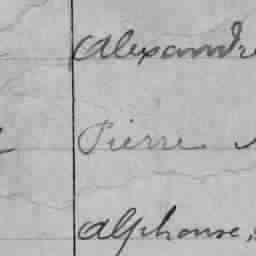 Alexandre
Pierre
Alphonse,